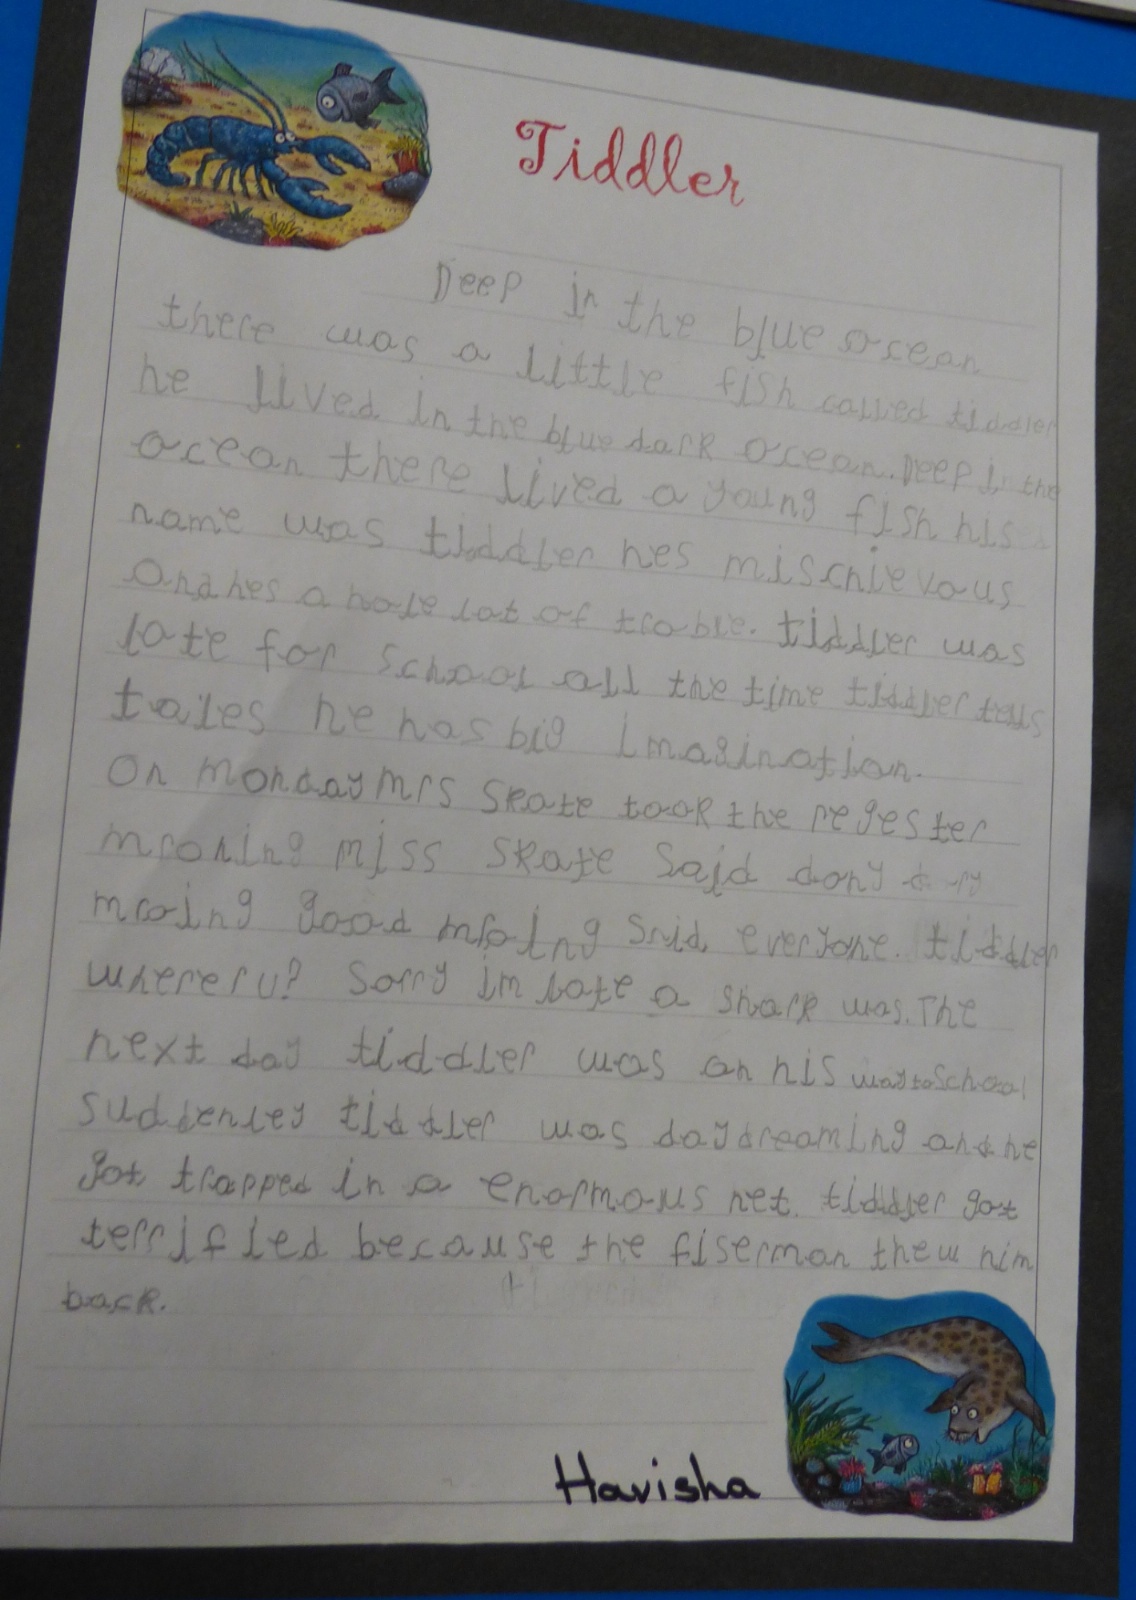 Tiddler
Deep in the blue ocean
there was a little fish called tiddler
he lived in the blue dark ocean. Deep in the
ocean there lived a young fish his
name was tiddler hes mischievous
and hes a hole lot of trouble. tiddler was
late for school all the time tiddler tells
tales he has big imagination.
On monday mrs skate took the regester
mroning miss skate said dony
mroing good mroing said everyone. tiddler
where r u? Sorry im late a shark was. The
next day tiddler was on his way to school
suddenley tiddler was daydreaming and he
got trapped in a enormous net. tiddler got
terrified because the fiserman thew him
back.
Havisha